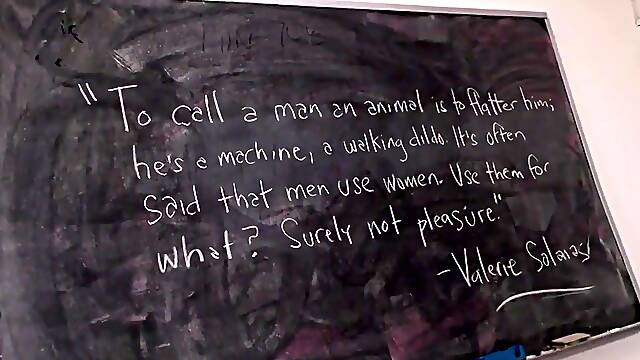 "To call a man an animal is to flatter him;
he's a machine, a walking dildo. It's often
said that men use women. Use them for
what? Surely not pleasure."
-Valerie Solanas